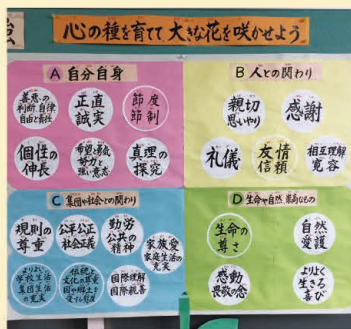 心の種を育てて大きな花を咲かせよう
A 自分自身
善悪の
判断、自律
自由と責任
正直
誠実
節度
節制
個性の
伸長
希望と勇気
努力と
強い意志
真理の
探究
B 人との関わり
親切
思いやり
感謝
礼儀
友情
信頼
相互理解
寛容
C 集団や社会との関わり
規則の
尊重
公正公平
社会正義
勤労
公共の
精神
家族愛
家庭生活の
充実
よりよい
学校生活
集団生活
の充実
伝統と
文化の尊重
国や郷土を
愛する態度
国際理解
国際親善
D 生命や自然、崇高なもの
生命の
尊さ
自然
愛護
感動
畏敬の念
よりよく
生きる
喜び